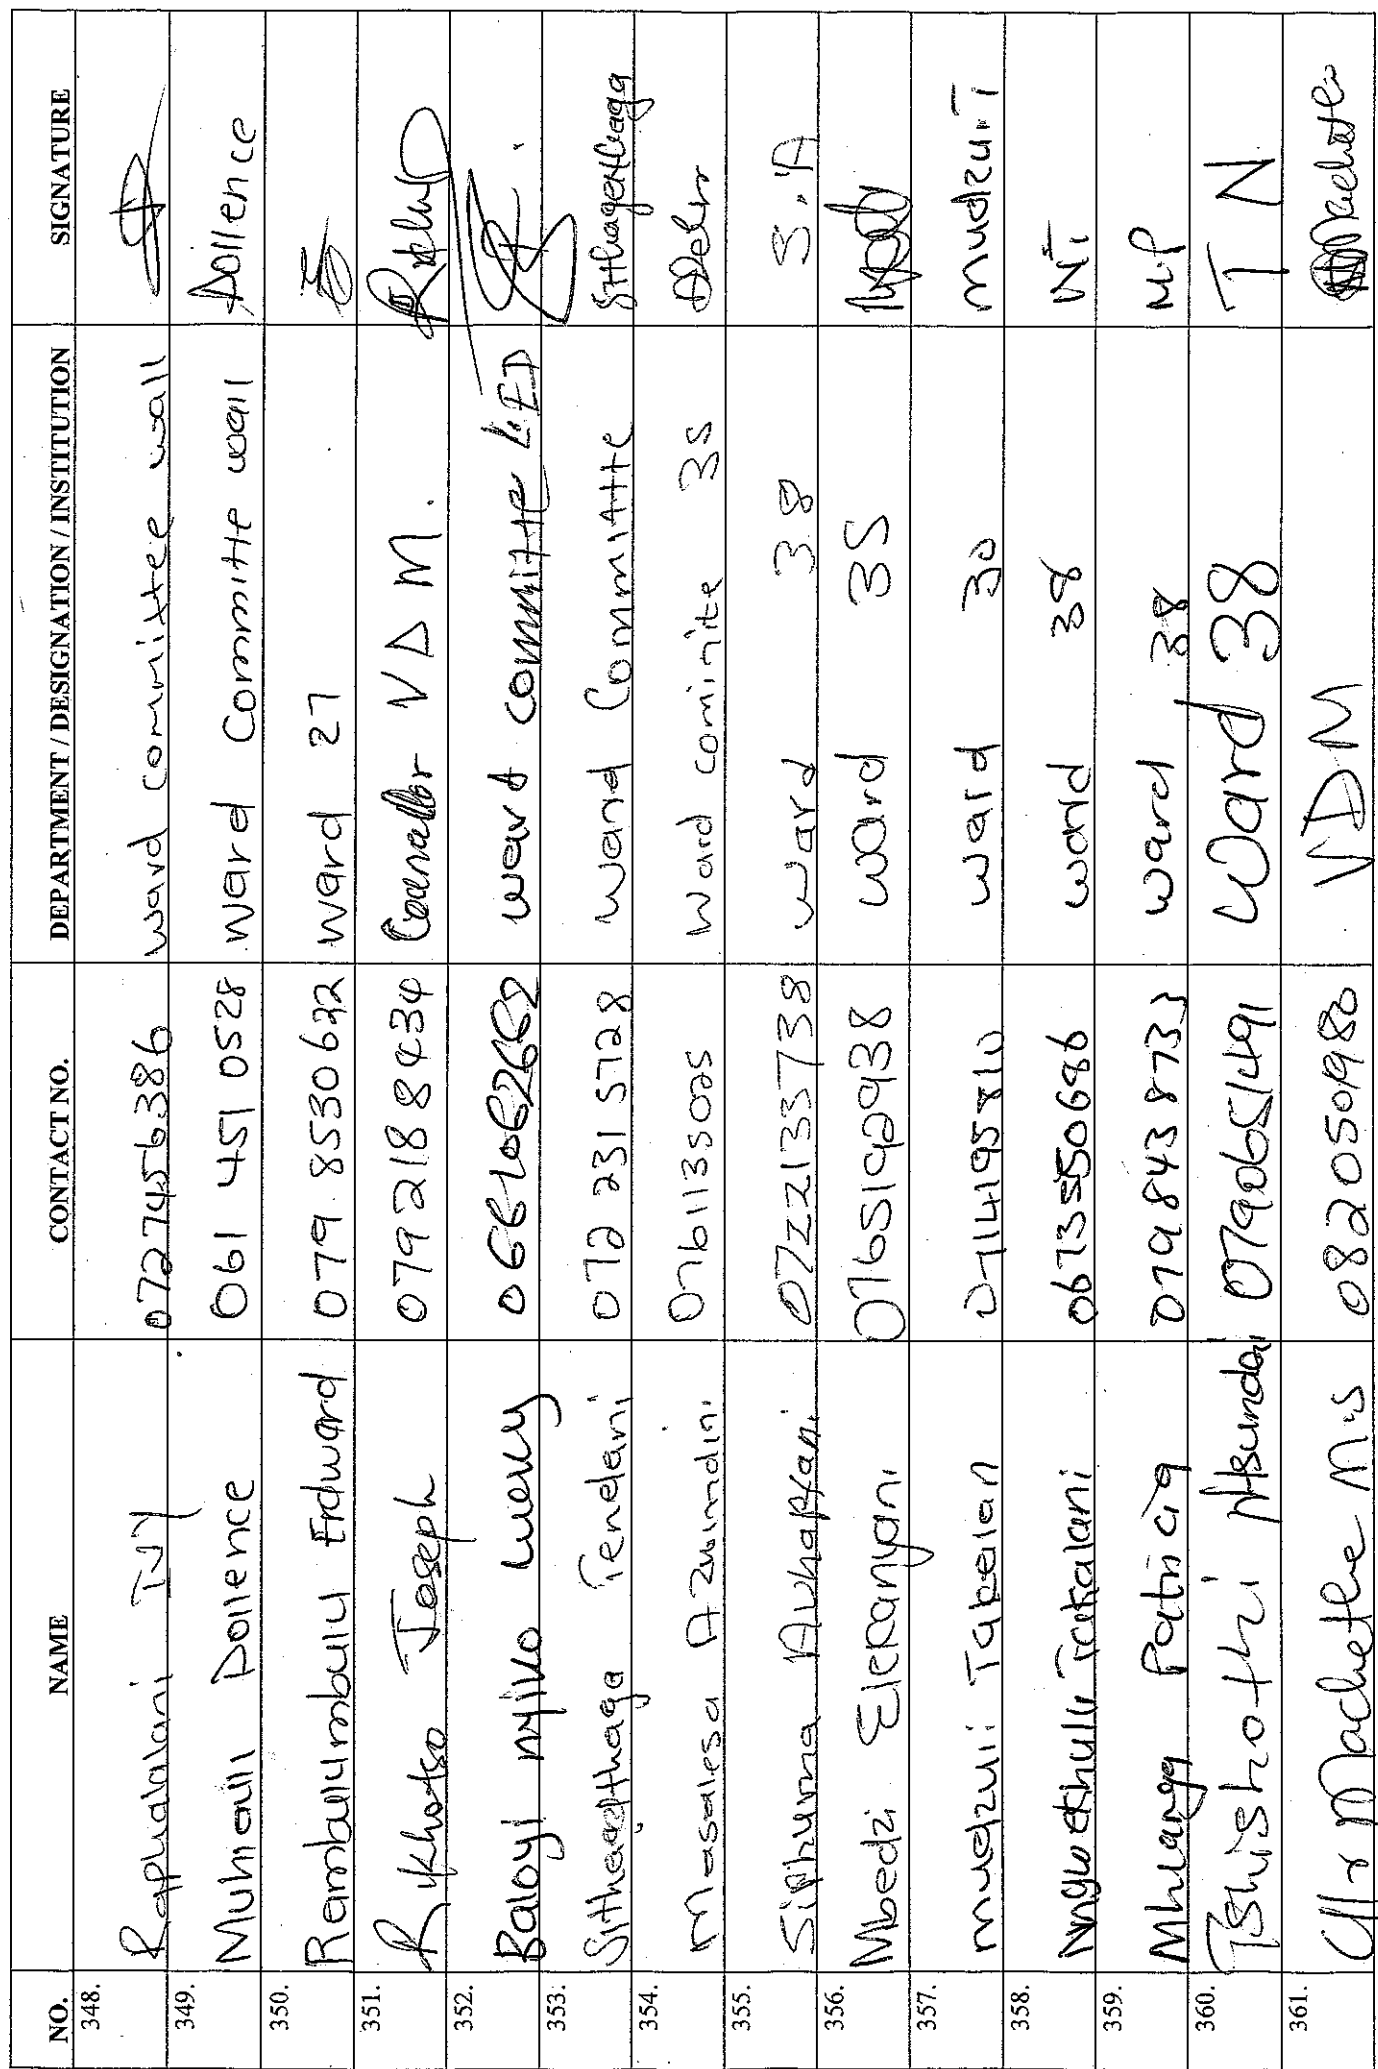 NO. NAME CONTACT NO. DEPARTMENT / DESIGNATION / INSTITUTION SIGNATURE
348. Raphalalani TNY 0727456386 ward committee wall
349. Muhiauli Dollence 061 451 0528 ward Committe wall Dollence
350. Rambuwumbulu Erdward 079 8530622 ward 27
351. Rikhotso Joseph 079 218 8434 VDM.
352. Baloyi nyiko Luecy ward committe LED
353. Tendani 072 231 5728 Ward Committe
354. masalesa Azwindini 0761135025 Ward cominite 35
355. Siphuma Aukhapfani 0722133738 ward 38 S.A
356. Mbedzi Elekanyani 0765192938 ward 35
357. mudzuli Takalan 0714195810 ward 30 mudzuli
358. Takalani ward 38 NT
359. Mhlanga Patricia 0798438733 ward 38 MP
360. Tshishothi Ntsundai 0790651491 Ward 38 T N
361. Cllr Machethe M.S 0820501980 VDM Machethe